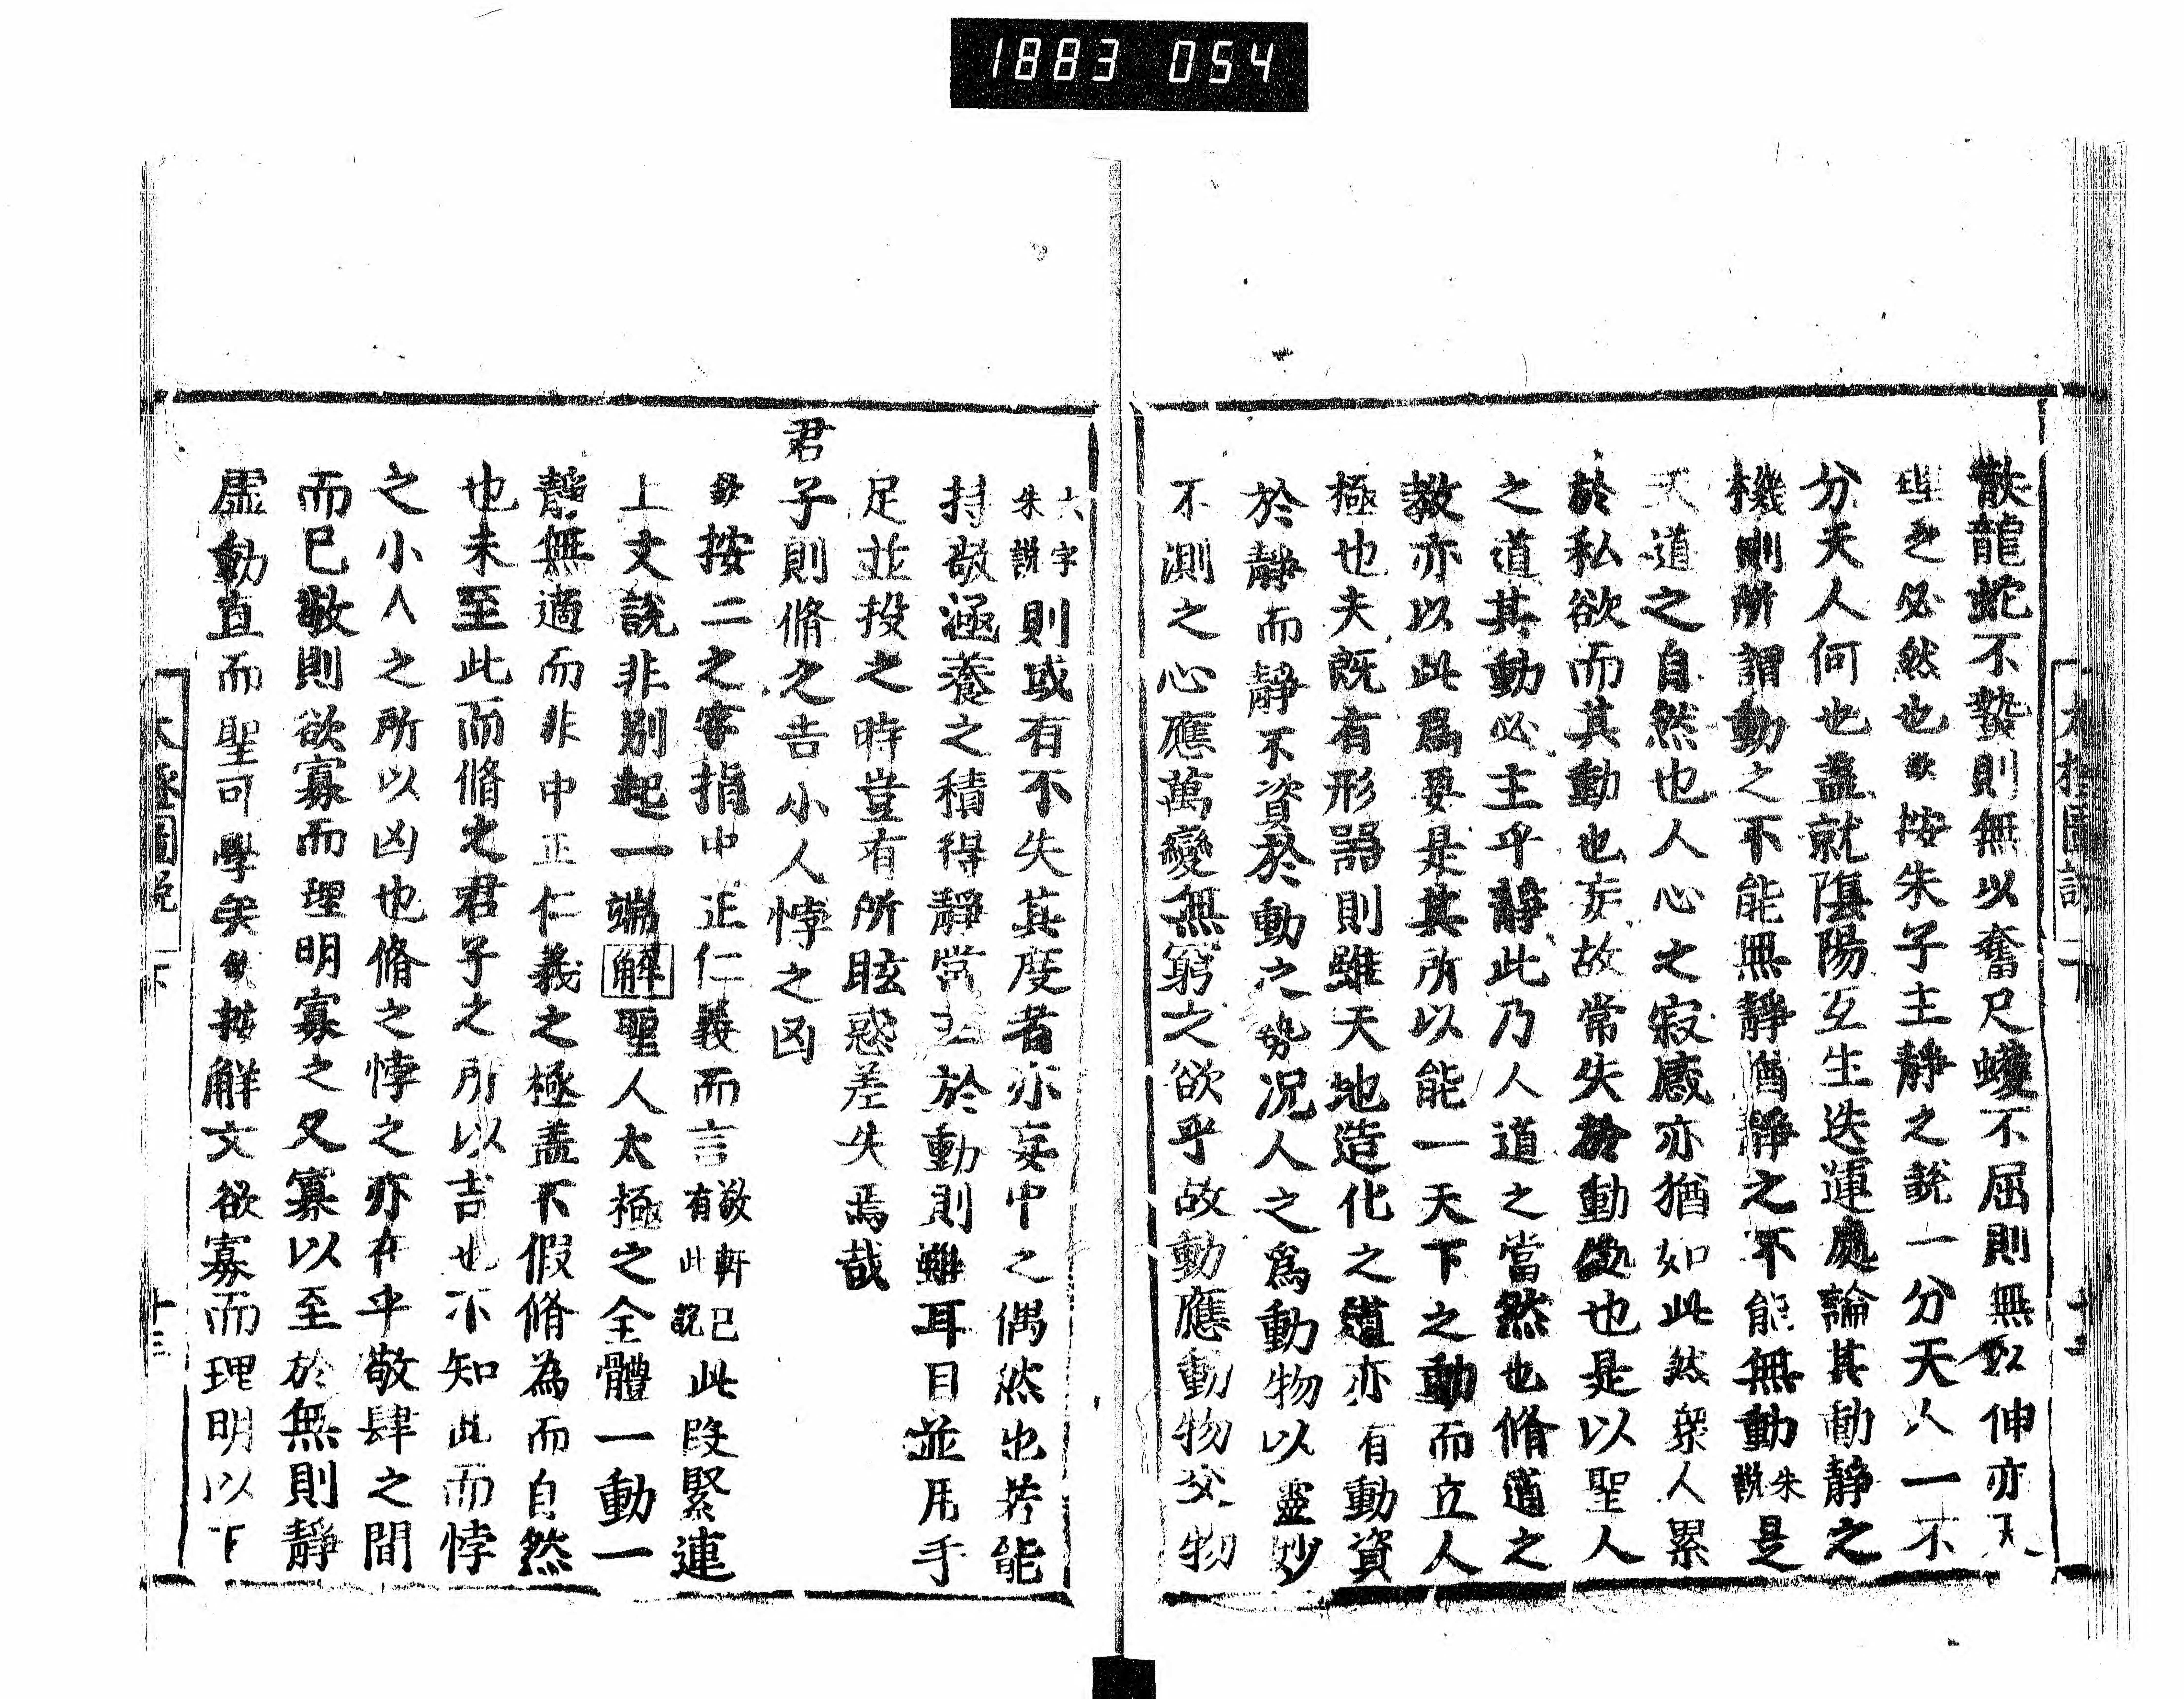 1883 054
散龍蛇不蟄則無以奮尺蠖不屈則無以伸亦天
理之必然也欽按朱子主靜之說一分天人一不
分天人何也蓋就陰陽互生迭運處論其動靜之
機則所謂動之不能無靜猶靜之不能無動朱說是
天道之自然也人心之寂感亦猶如此然衆人累
於私欲而其動也妄故常失於動也是以聖人
之道其動必主乎靜此乃人道之當然也脩道之
教亦以此爲要是其所以能一天下之動而立人
極也夫旣有形器則雖天地造化之道亦有動資
於靜而靜不資於動之勢況人之爲動物以靈妙
不測之心應萬變無窮之欲乎故動應動物交物
六字朱說則或有不失其度者亦妄中之偶然也若能
持敬涵養之積得靜常主於動則雖耳目並用手
足並投之時豈有所眩惑差失焉哉
君子則脩之吉小人悖之凶
欽按二之字指中正仁義而言敬軒已有此說此段緊連
上文說非別起一端解聖人太極之全體一動一
靜無適而非中正仁義之極蓋不假脩為而自然
也未至此而脩之君子之所以吉也不知此而悖
之小人之所以凶也脩之悖之亦在乎敬肆之間
而已敬則欲寡而理明寡之又寡以至於無則靜
虛動直而聖可學矣欽按解文欲寡而理明以下
太極圖說 下 十三